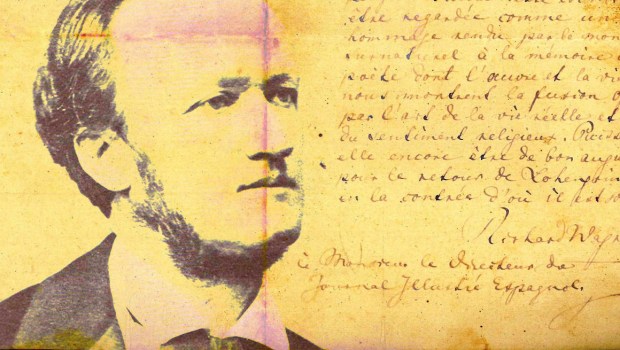 être regardée comme un
hommage rendu par le mon
surnaturel à la mémoire
poëte dont l'œuvre et la vi
nous montrent la fusion
par l'art de la vie réelle et
du sentiment religieux.
elle encore être de bon augu
pour le retour de Lohengrin
en la contrée d'où il est
Richard Wagn
à Monsieur le Directeur du
Journal Illustré Espagnol.